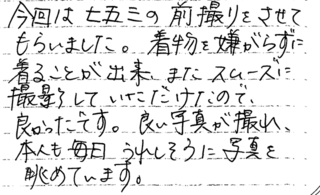 今回は七五三の前撮りをさせて
もらいました。着物を嫌がらずに
着ることが出来、またスムーズに
撮影していただけたので、
良かったです。良い写真が撮れ、
本人も毎日うれしそうに写真を
眺めています。